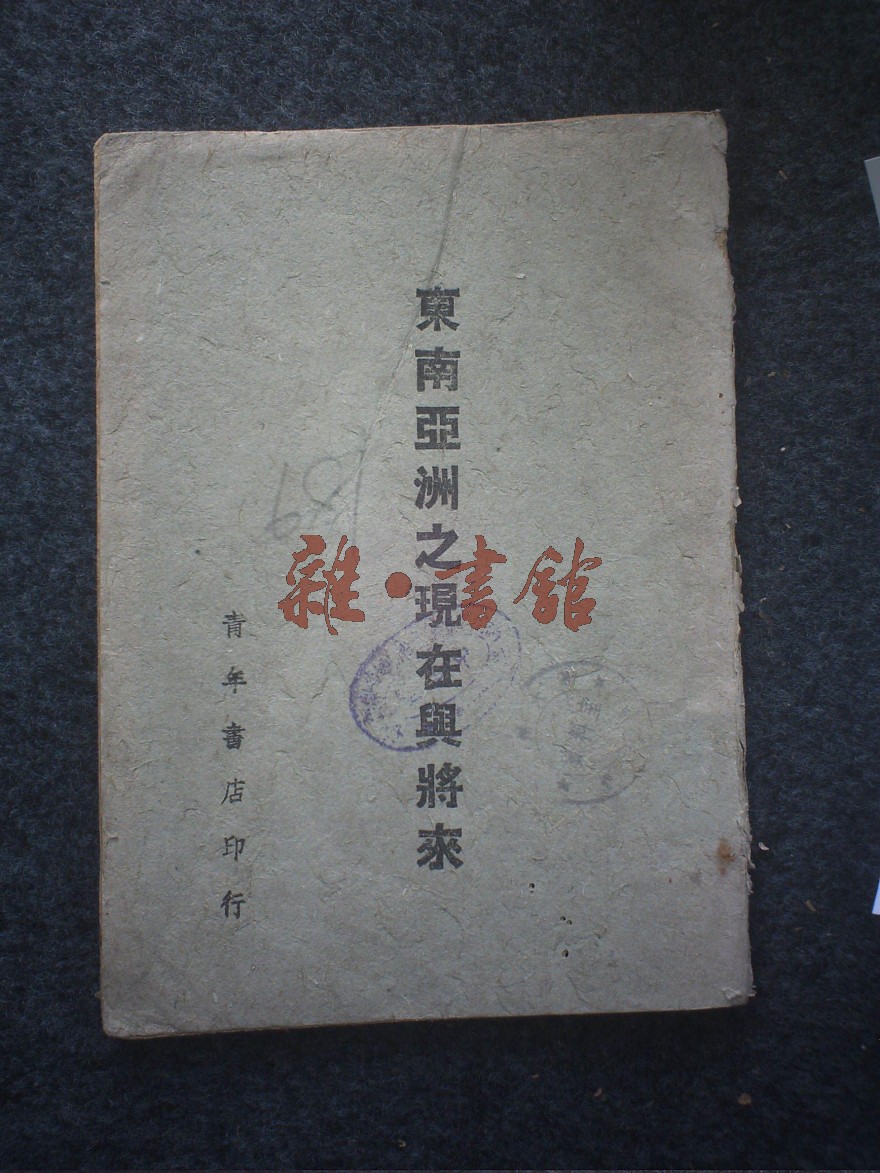 東南亞洲之現在與將來
青年書店印行
雜·書館
139